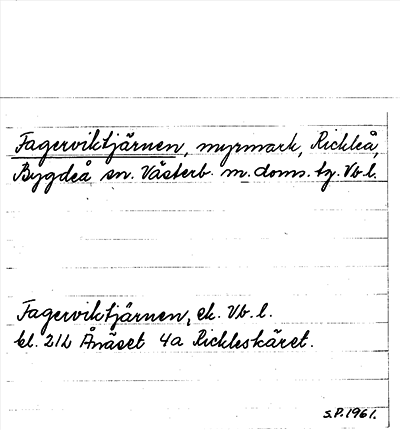 Fagerviktjärnen, myrmark, Rickleå,
Bygdeå sn. Västerb. m. doms. tg. Vb. l.
Fagerviktjärnen, ek. Vb. l.
bl. 21L Ånäset 4a Rickleskäret.
S.P. 1961.